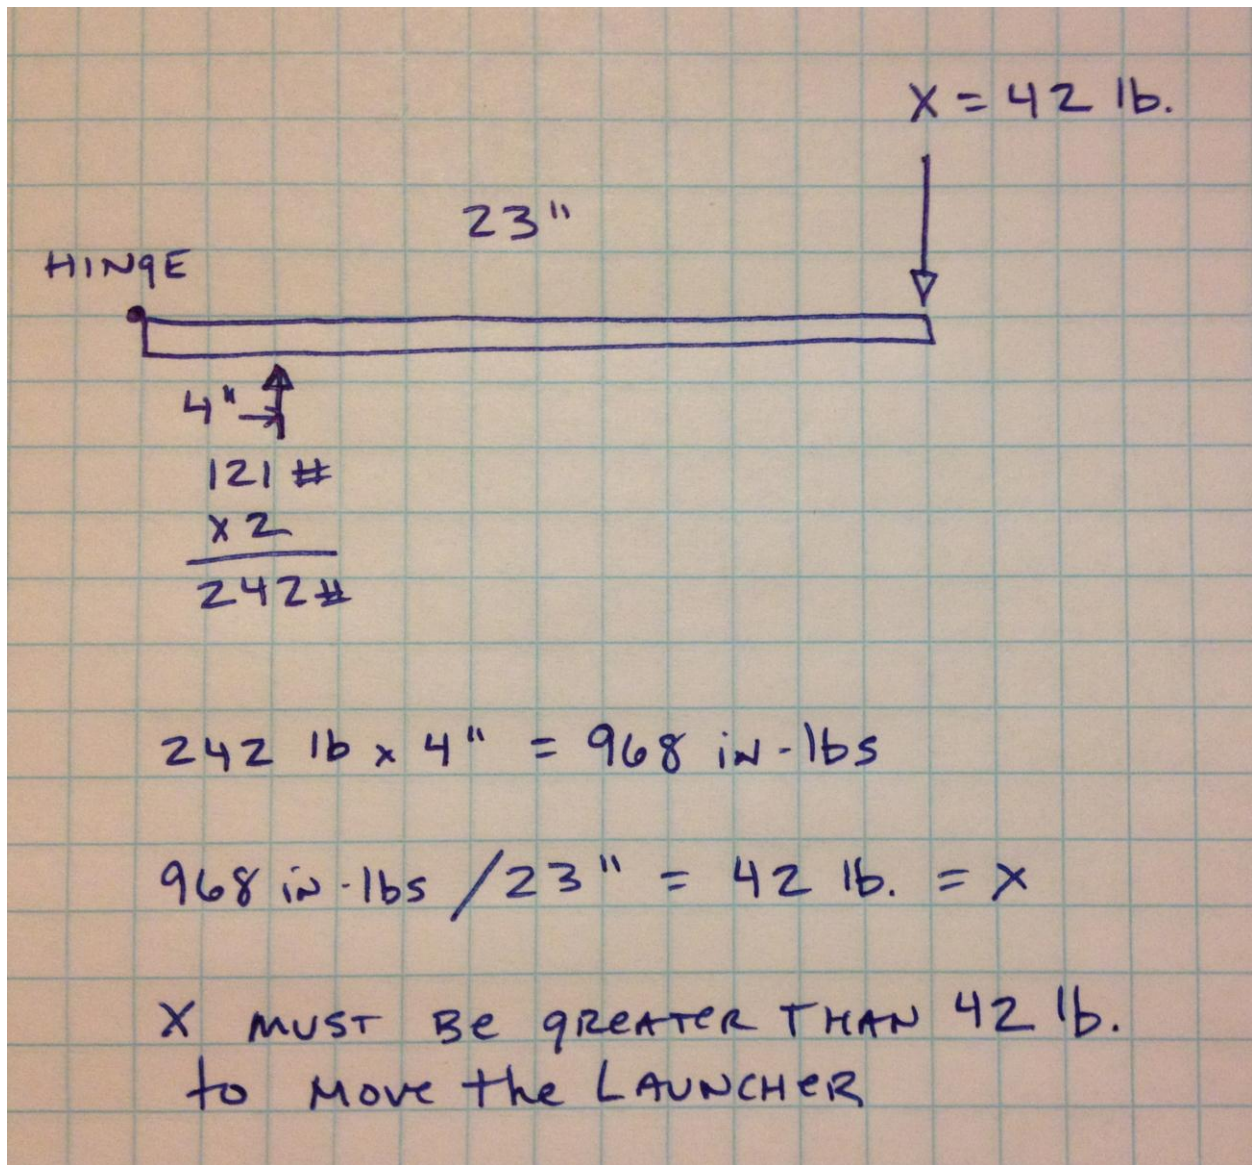 X = 42 lb.
23"
HINgE
4"
121 #
x 2
242#
242 lb x 4" = 968 iN-lbs
968 iN-lbs /23" = 42 lb. = X
X MUST Be gReATeR THAN 42 lb.
to Move the LAUNCHeR